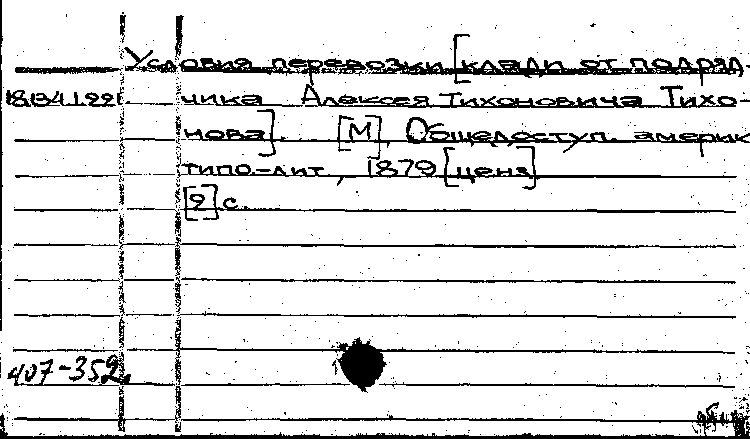 Условия перевозки [клади от подряд-
18.134.1.221. чика Алексея Тихоновича Тихо-
нова]. [М], Общедоступ. америк
типо-лит, 1879 [ценз]
[2] с.
407-352.